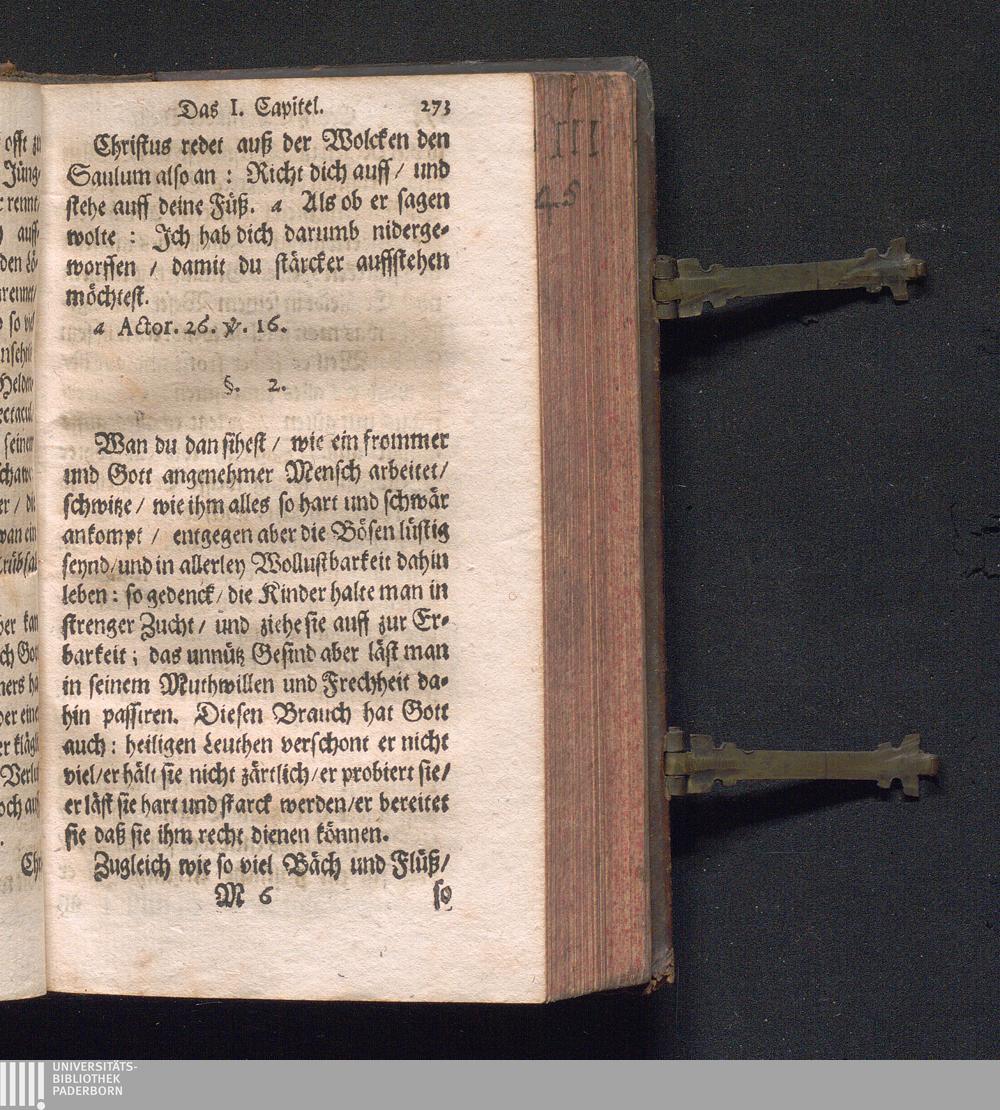 Das I. Capitel. 273
Christus redet auß der Wolcken den
Saulum also an : Richt dich auff / und
stehe auff deine Füß. a Als ob er sagen
wolte : Ich hab dich darumb niderge-
worffen / damit du stärcker auffstehen
möchtest.
a Actor. 26. ℣. 16.
§. 2.
Wan du dan sihest / wie ein frommer
und Gott angenehmer Mensch arbeitet /
schwitze / wie ihm alles so hart und schwär
ankompt / entgegen aber die Bösen lüstig
seynd / und in allerley Wollustbarkeit dahin
leben : so gedenck / die Kinder halte man in
strenger Zucht / und ziehe sie auff zur Er-
barkeit ; das unnütz Gesind aber läst man
in seinem Muthwillen und Frechheit da-
hin passiren. Diesen Brauch hat Gott
auch : heiligen Leuthen verschont er nicht
viel / er hält sie nicht zärtlich / er probiert sie /
er läst sie hart und starck werden / er bereitet
sie daß sie ihm recht dienen können.
Zugleich wie so viel Bäch und Flüß /
M 6 so
UNIVERSITÄTS-
BIBLIOTHEK
PADERBORN